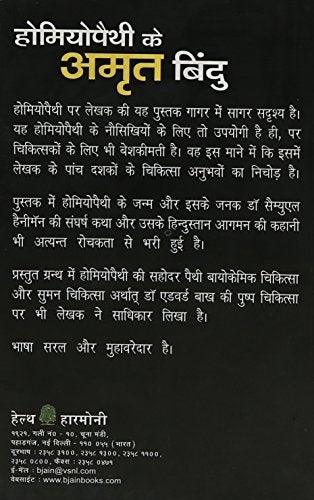 होमियोपैथी के
अमृत बिंदु
होमियोपैथी पर लेखक की यह पुस्तक गागर में सागर सदृश्य है।
यह होमियोपैथी के नौसिखियों के लिए तो उपयोगी है ही, पर
चिकित्सकों के लिए भी बेशकीमती है। वह इस माने में कि इसमें
लेखक के पांच दशकों के चिकित्सा अनुभवों का निचोड़ है।
पुस्तक में होमियोपैथी के जन्म और इसके जनक डॉ सैम्युएल
हैनीमॅन की संघर्ष कथा और उसके हिन्दुस्तान आगमन की कहानी
भी अत्यन्त रोचकता से भरी हुई है।
प्रस्तुत ग्रन्थ में होमियोपैथी की सहोदर पैथी बायोकेमिक चिकित्सा
और सुमन चिकित्सा अर्थात् डॉ एडवर्ड बाख की पुष्प चिकित्सा
पर भी लेखक ने साधिकार लिखा है।
भाषा सरल और मुहावरेदार है।
हेल्थ हारमोनी
१९२१, गली नं० - १०, चूना मंडी,
पहाड़गंज, नई दिल्ली - ११० ०५५ (भारत)
दूरभाष : २३५८ ३१००, २३५८ १३००, २३५८ ११००,
२३५८ ०८००, फॅक्स : २३५८ ०४७१
ई-मेल : bjain@vsnl.com
वेबसाईट : www.bjainbooks.com